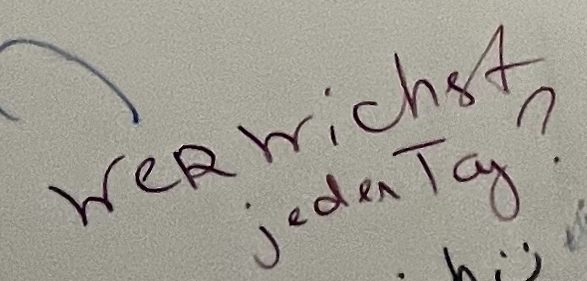 wer wichst
jeden Tag?
hi :)